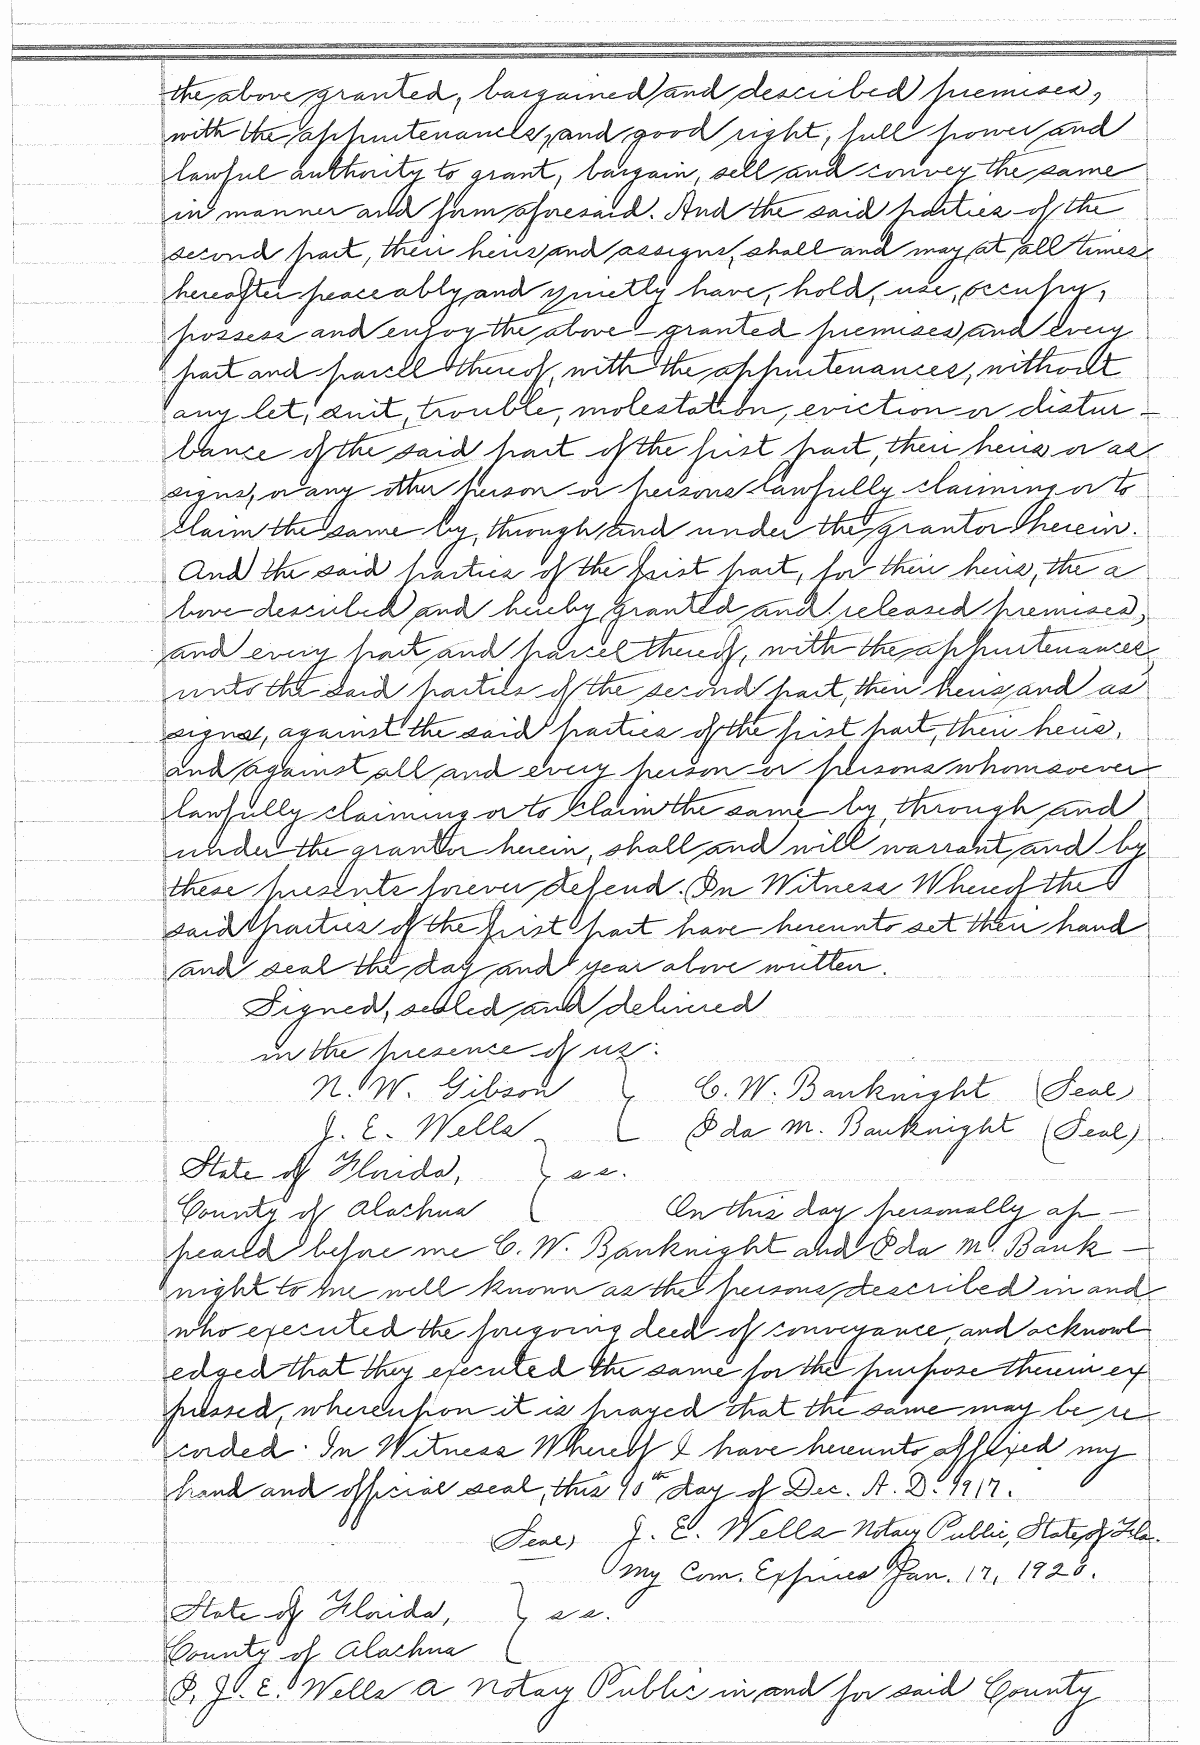 the above granted, bargained and described premises,
with the appurtenances, and good right, full power and
lawful authority to grant, bargain, sell and convey the same
in manner and form aforesaid. And the said parties of the
second part, their heirs and assigns, shall and may at all times
hereafter peaceably and quietly have, hold, use, occupy,
possess and enjoy the above granted premises and every
part and parcel thereof, with the appurtenances, without
any let, suit, trouble, molestation, eviction or distur-
bance of the said part of the first part, their heirs or as
signs, or any other person or persons lawfully claiming or to
claim the same by, through and under the grantor herein.
And the said parties of the first part, for their heirs, the a
bove described and hereby granted and released premises,
and every part and parcel thereof, with the appurtenances
unto the said parties of the second part, their heirs and as
signs, against the said parties of the first part, their heirs,
and against all and every person or persons whomsoever
lawfully claiming or to claim the same by, through and
under the grantor herein, shall and will warrant and by
these presents forever defend. In Witness Whereof the
said parties of the first part have hereunto set their hand
and seal the day and year above written.
Signed, sealed and delivered
in the presence of us:
N. W. Gibson } C. W. Bauknight (Seal)
J. E. Wells Ida M. Bauknight (Seal)
State of Florida, } s s.
County of Alachua On this day personally ap-
peared before me C. W. Bauknight and Ida M. Bauk-
night to me well known as the persons described in and
who executed the foregoing deed of conveyance, and acknowl
edged that they executed the same for the purpose therein ex
pressed, whereupon it is prayed that the same may be re
corded. In Witness Whereof I have hereunto affixed my
hand and official seal, this 10th day of Dec. A. D. 1917.
(Seal) J. E. Wells Notary Public, State of Fla.
My Com. Expires Jan. 17, 1920.
State of Florida, } s s.
County of Alachua
I, J. E. Wells a Notary Public in and for said County